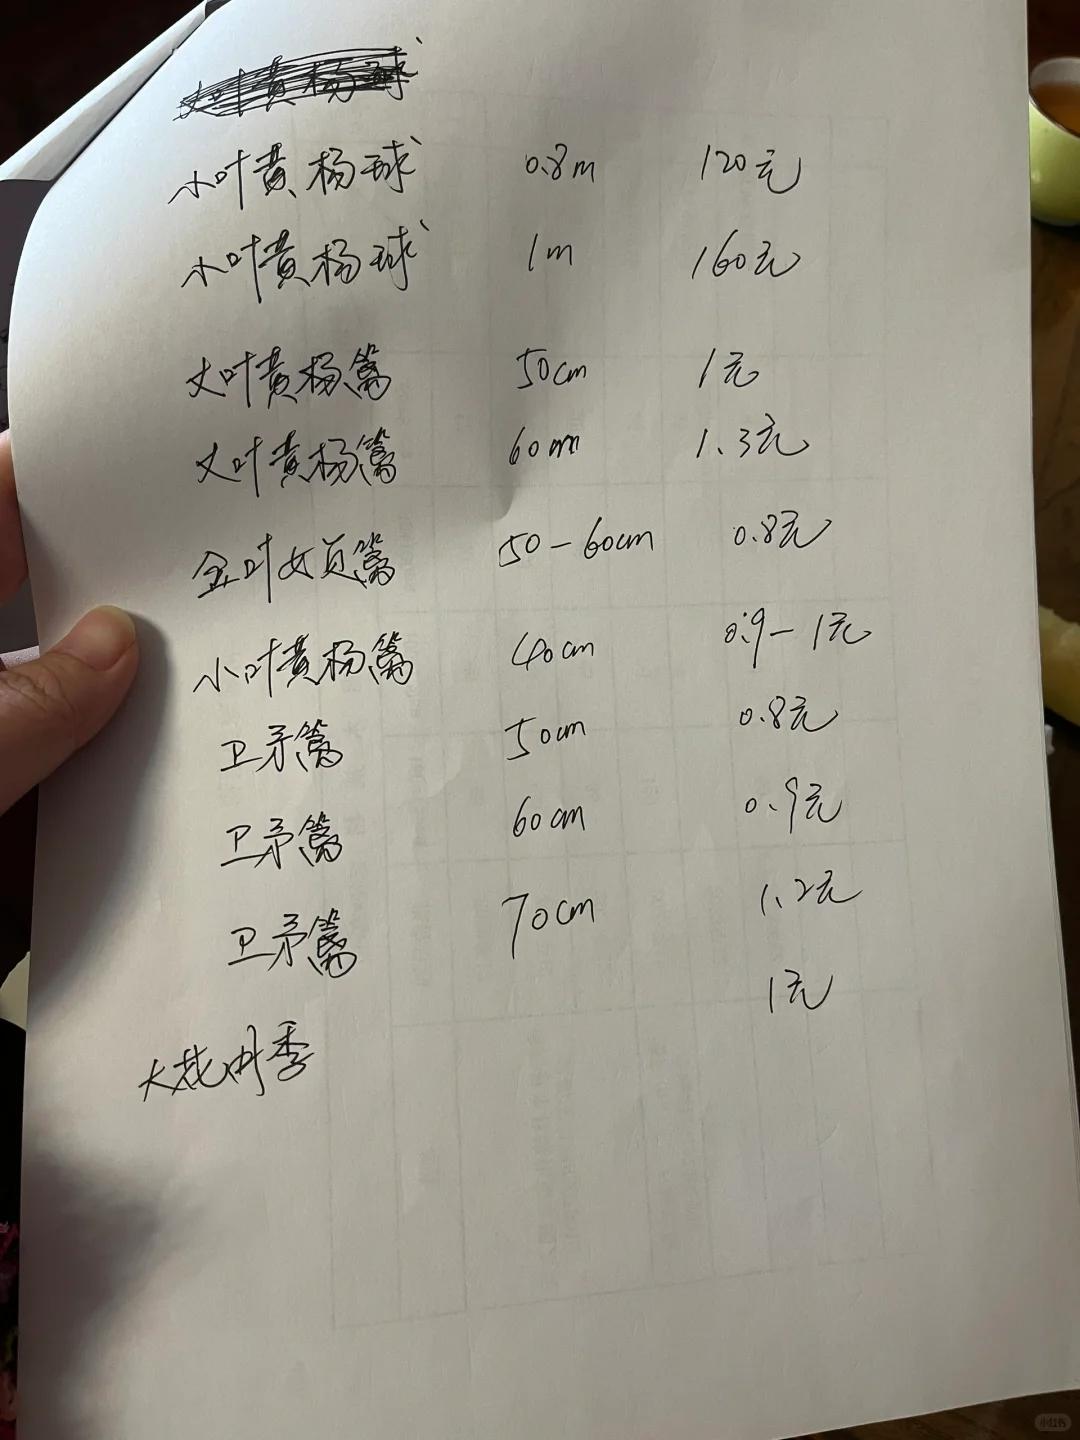 小叶黄杨球 0.8m 120元
小叶黄杨球 1m 160元
大叶黄杨篱 50cm 1元
大叶黄杨篱 60cm 1.3元
金叶女贞篱 50-60cm 0.8元
小叶黄杨篱 40cm 0.9-1元
卫矛篱 50cm 0.8元
卫矛篱 60cm 0.9元
卫矛篱 70cm 1.2元
大花月季 1元
小红书